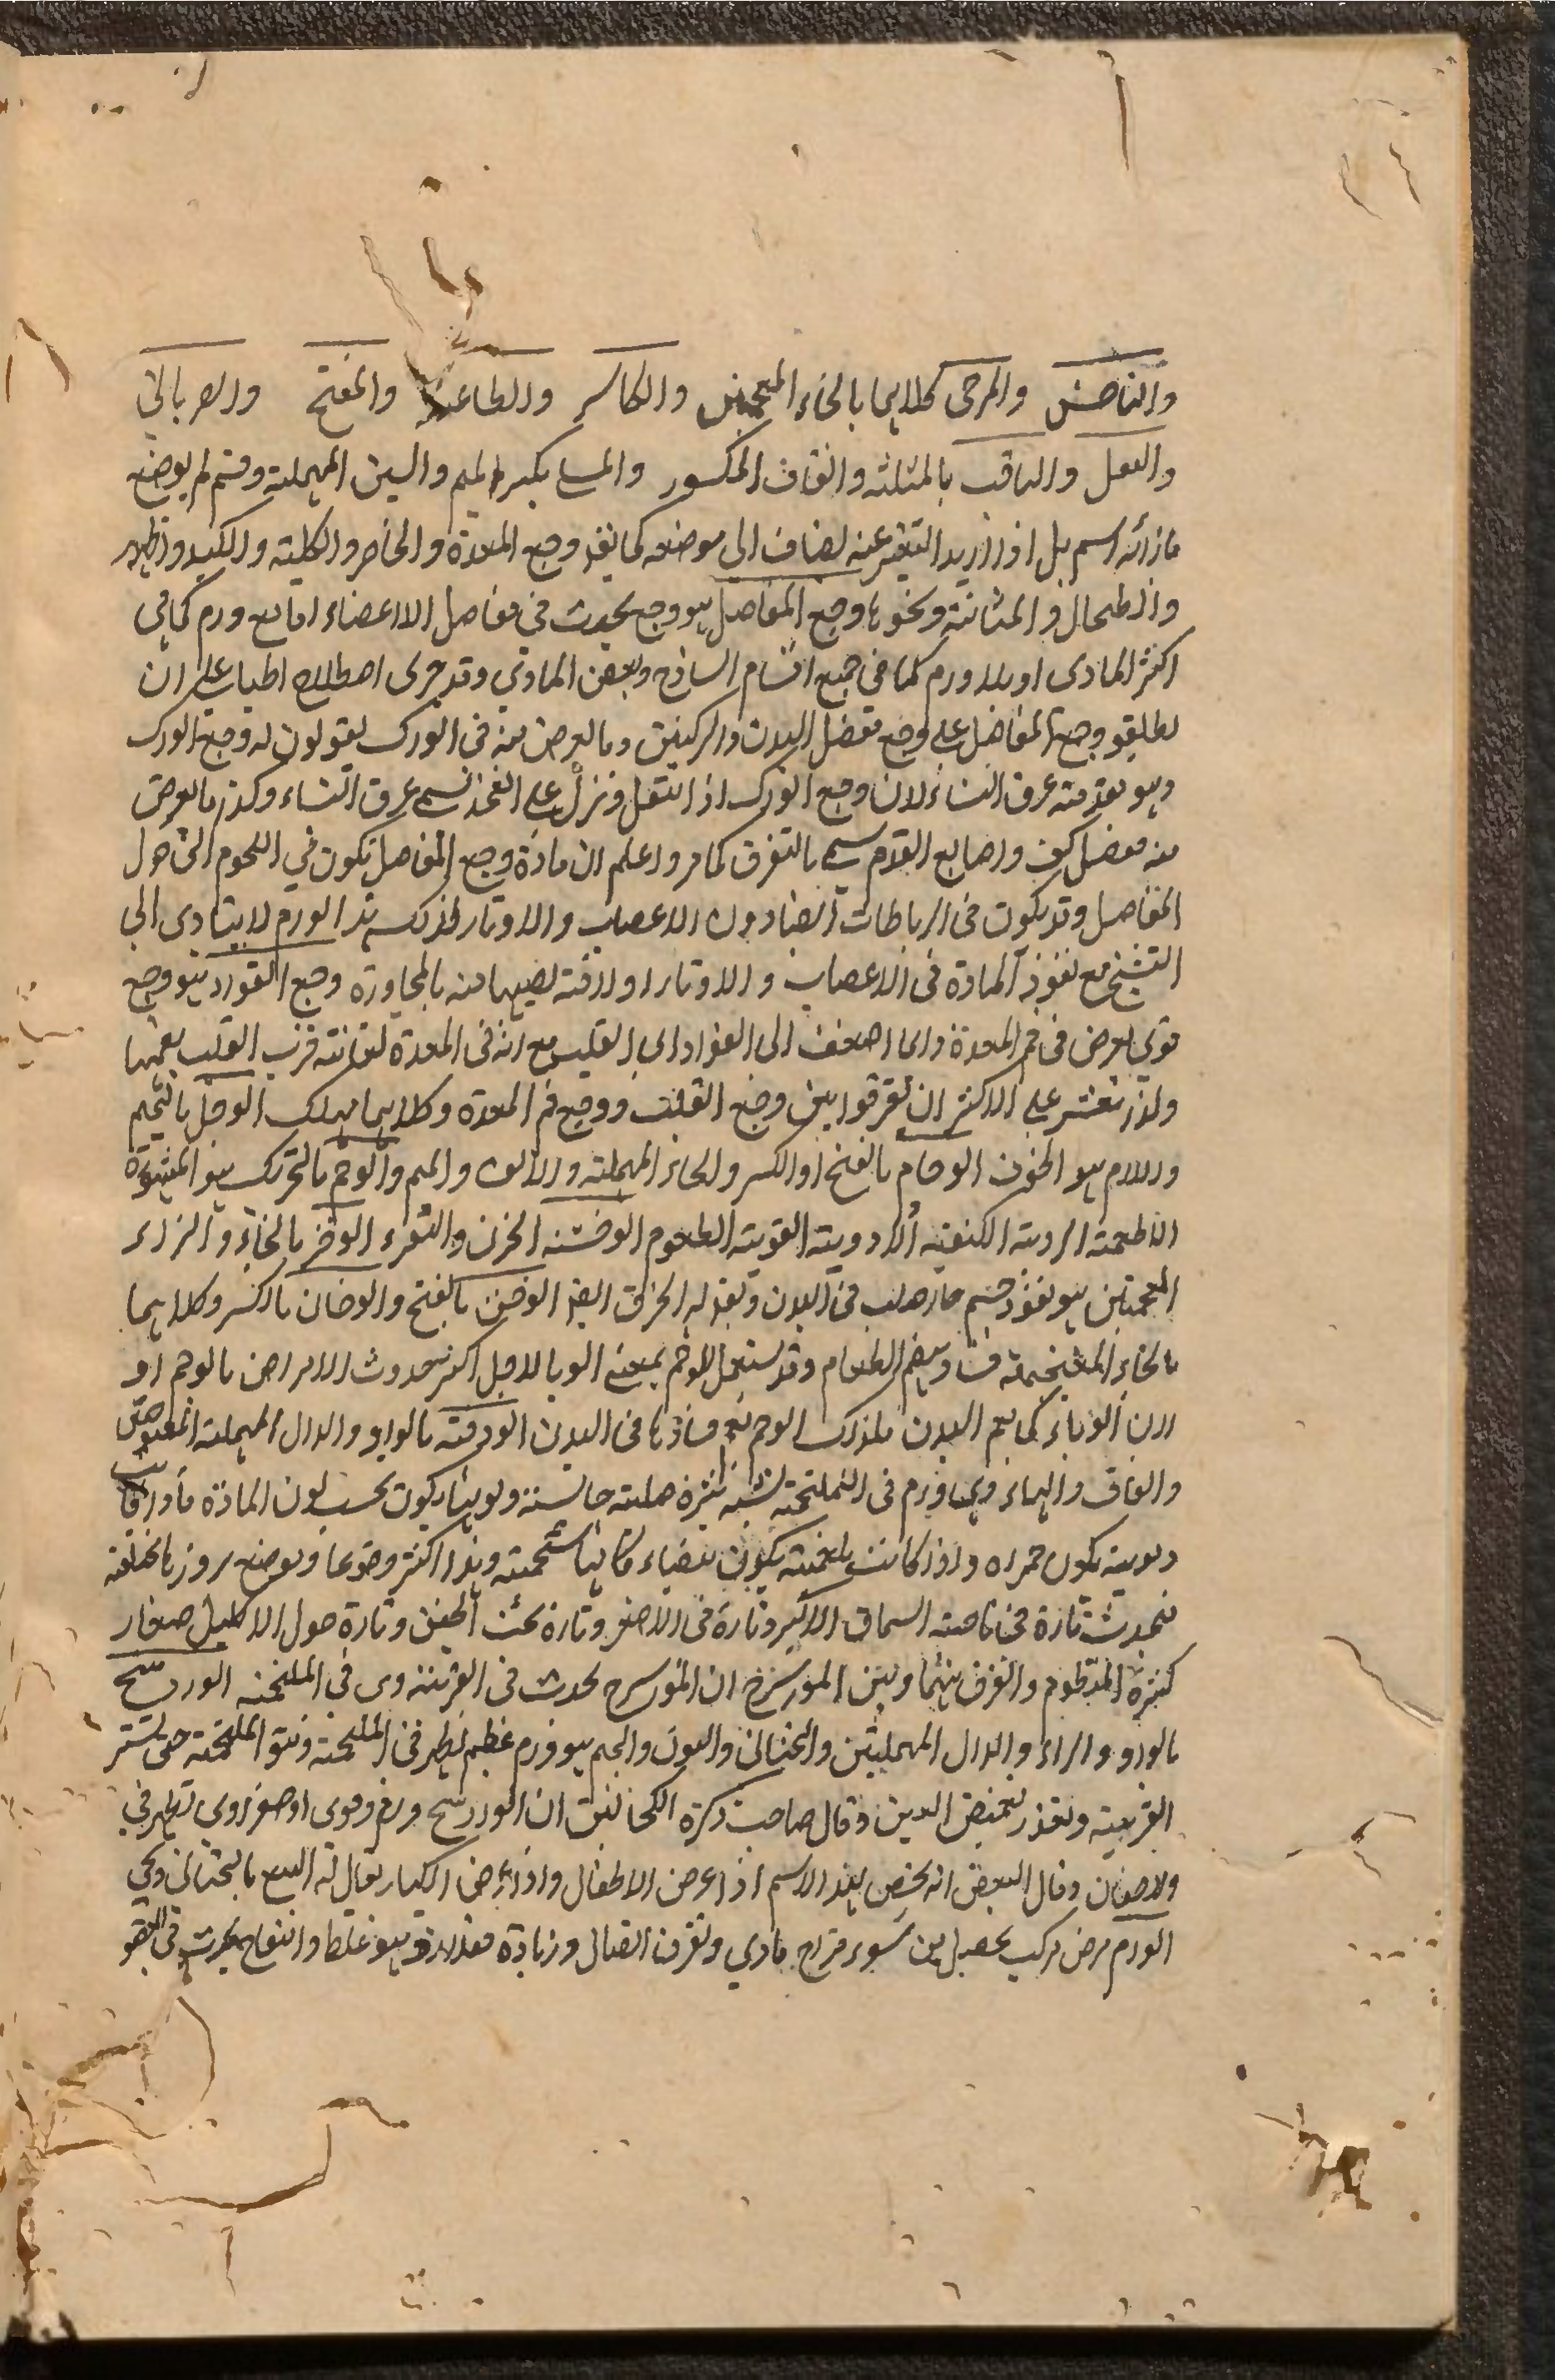 والناخس والمرخى كلاهما بالخاء المعجمتين والكاسر والطاعنة والمفتح والضربانى
والثقل والثاقب بالمثلثه والقاف المكسور والمسلى بكسر الميم والسين المهملته وقسم لم يوضع
بازائه اسم بل اذا اريد التعبير عنه يضاف الى موضعه كما يقو وجع المعدة والخاصر والكليته والكبد والظهر
والطحال والمثانته ونحوها وجع المفاصل هو وجع يحدث فى مفاصل الاعضاء اما مع ورم كما فى
اكثر المادى او بلا ورم كما فى جميع اقسام الساذج وبعض المادي وقد جرى اصطلاح اطباء على ان
يطلقو وجع المفاصل على وجع مفصل اليدن والركبتين وما يعرض منه فى الورك يقولون له وجع الورك
وهو مقدمته عرق النساء لان وجع الورك اذا انتقل ونزل على الفخذ يسمى عرق النساء وكذا ما يعرض
منه مفصل كعب واصابع القدم يسمى بالنقرس كما مر واعلم ان مادة وجع المفاصل تكون في اللحوم التى حول
المفاصل وقد يكون فى الرباطات ايضا دون الاعصاب والاوتار لذلك هذا الورم لا يتادى الى
التشنج مع نفوذ المادة فى الاعصاب والاوتار او لافته تصيبها منه بالمجاورة وجع الفواد هو وجع
قوي يعرض فى فم المعدة وانما اضعف الى الفواد اى القلب مع انه فى المعدة لغايته قرب القلب بفمها
ولذا تعسر على الاكثر ان يفرقوا بين وجع القلب ووجع فم المعدة وكلاهما مهلك الوجل بالجيم
واللام هو الخوف الوحام بالفتح او الكسر والحاء المهملته والالف والميم والوحم بالتحرك هو المشهوة
الاطعمته الردية الكيفيته الادويته القويته الطعوم الوحشته الحزن والتفرد الوخز بالخاء والزاء
المعجمتين هو نفوذ جسم حار صلب فى البدن ويقو له الخزق ايضا الوخن بالفتح والوخان بالكسر وكلاهما
بالخاء المعجمته فساد هضم الطعام وقد يستعمل الوخم بمعنى الوبا لاجل اكثر حدوث الامراض بالوخم او
لان الوباء كما يعم البدن كذلك الوخم يعم فسادها فى البدن الودقته بالواو والدال المهملته المفتوحتى
والقاف والهاء وهى ورم فى الملتحمته يشبه بثرة صلبته جالسته ولونها يكون بحسب لون المادة فاذا كانت
دمويته يكون حمراء واذا كانت بلغميته يكون بيضاء كانها شحمته وهذا اكثر وقوعا وموضع بروزها مختلفه
فيحدث تارة فى ناحيته السماق الاكبر وتارة فى الاصغر وتارة تحت الجفن وتارة حول الاكليل صغار
كثيرة المدظوم والفرق بينها وبين المورسرج ان المورسرج يحدث فى القرنيه وهى فى الملتحمته الوردينج
بالواو والراء والدال المهملتين والتحتانى والنون والجيم هو ورم عظيم يظهر فى الملتحمته وينتو الملتحمته حتى تستر
القرنيته ويقدر تغميض العين وقال صاحب تذكرة الكحالين ان الوردينج ورم دموى او صفراوى تظهر فى
والاجفان وقال البعض انه يختص بهذا الاسم اذا عرض الاطفال واذا عرض الكبار يقال له الينع بالتحتانى وهى
الورم مرض مركب يحصل من سوء مزاج مادي وتفرق اتصال وزيادة مقدار وهو غلظ وانتفاخ يحدث فى العضو